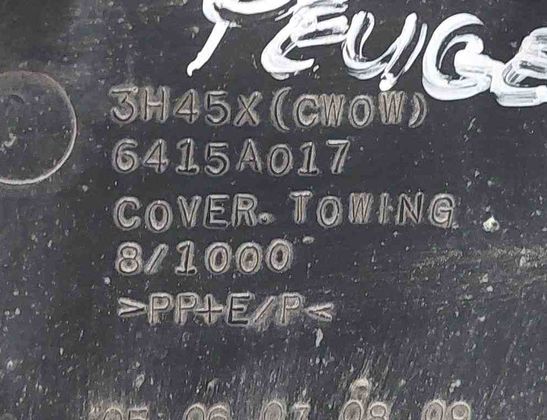 PEUGE
3H45X(CWOW)
6415A017
COVER. TOWING
8/1000
>PP+E/P<
'05 06 07 08 09